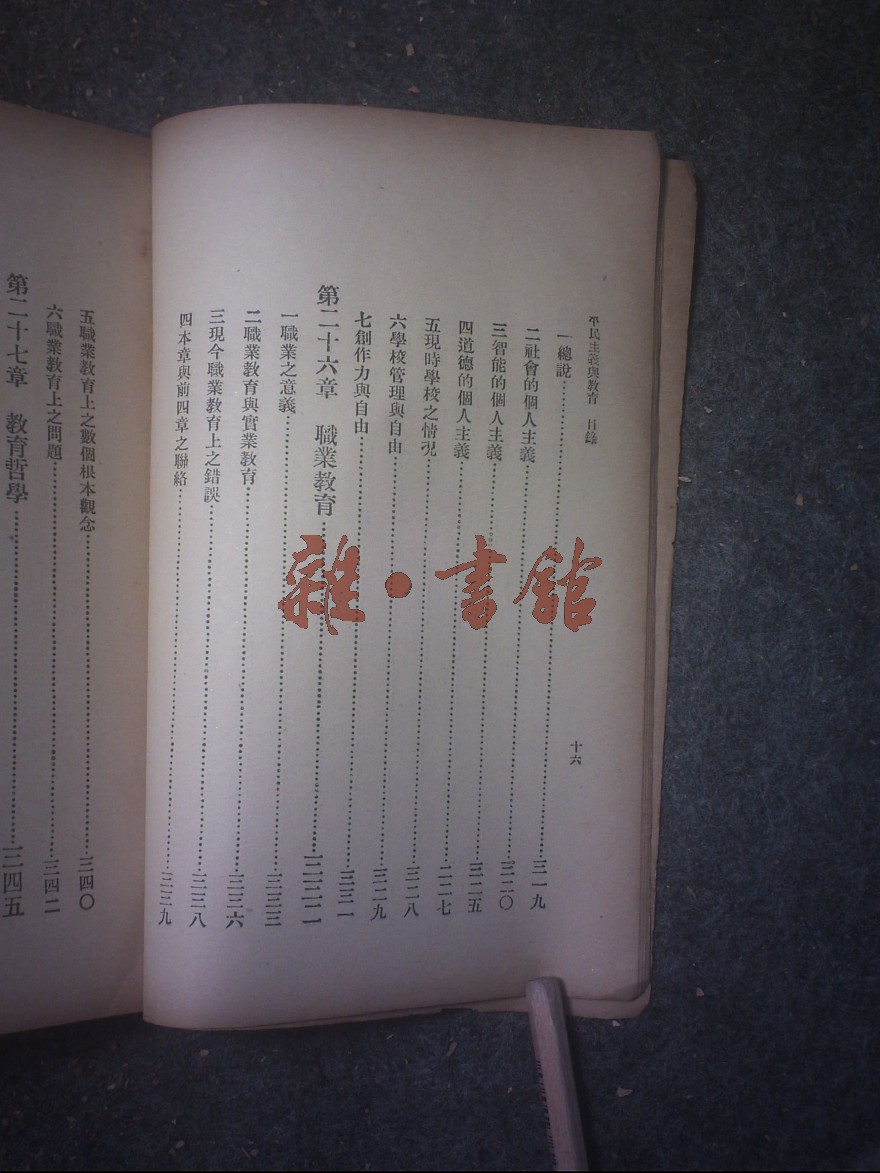 平民主義與教育　目錄　十六
一 總說……三一九
二 社會的個人主義……三二〇
三 智能的個人主義……三二五
四 道德的個人主義……三二七
五 現時學校之情況……三二八
六 學校管理與自由……三二九
七 創作力與自由……三三一
第二十六章　職業教育……
一 職業之意義……三三三
二 職業教育與實業教育……三三六
三 現今職業教育上之錯誤……三三八
四 本章與前四章之聯絡……三三九
五 職業教育上之數個根本觀念……三四〇
六 職業教育上之問題……三四二
第二十七章　教育哲學……三四五
雜·書館